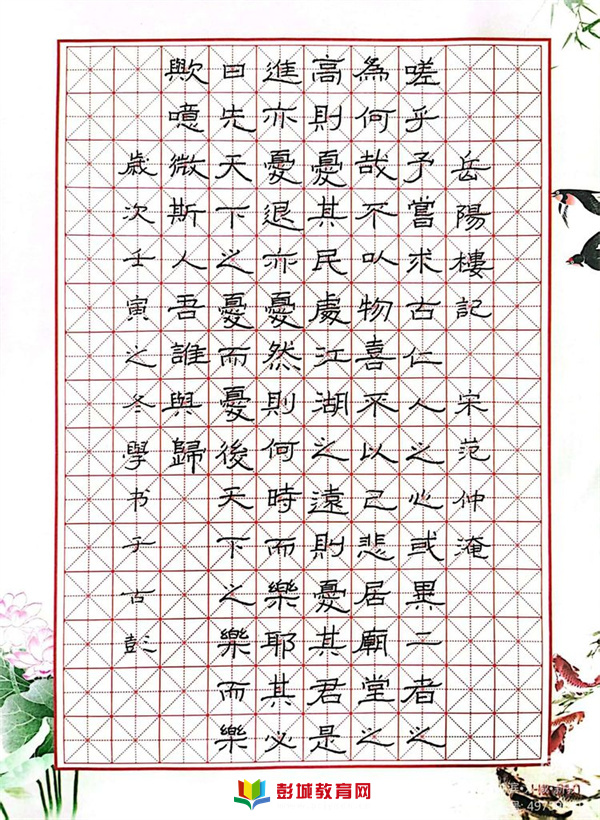 岳陽樓記 宋范仲淹
嗟乎予嘗求古仁人之心或異二者之
為何哉不以物喜不以己悲居廟堂之
高則憂其民處江湖之遠則憂其君是
進亦憂退亦憂然則何時而樂耶其必
曰先天下之憂而憂後天下之樂而樂
歟噫微斯人吾誰與歸
歲次壬寅之冬學书于古彭
彭城教育网